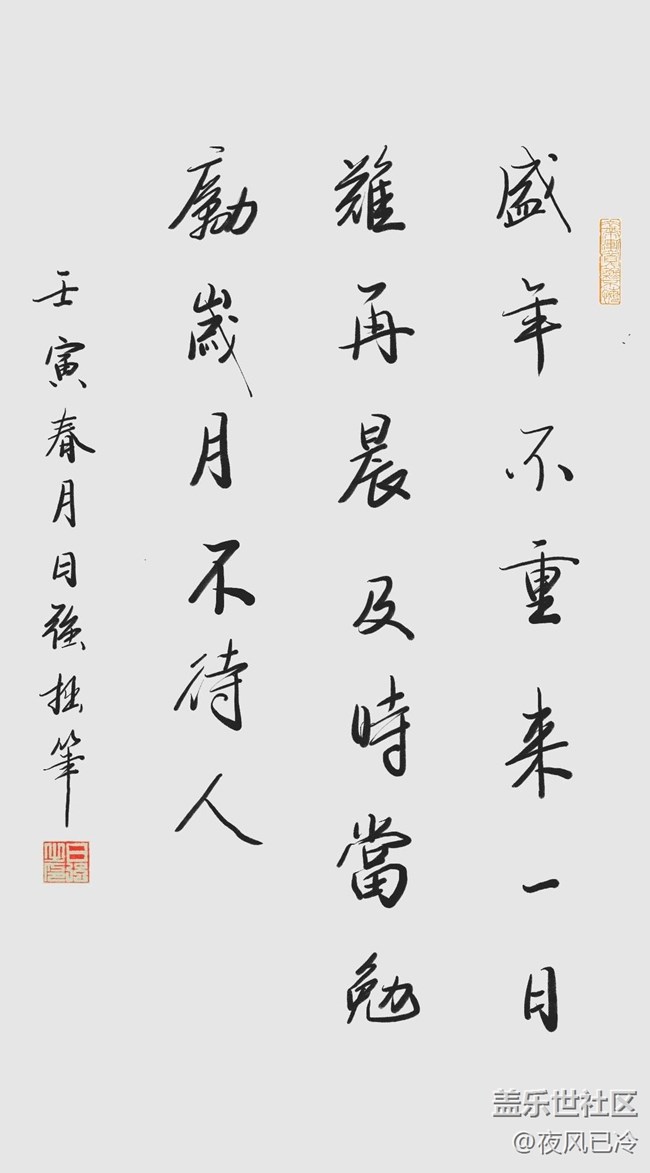 盛年不重来一日
難再晨及時當勉
勵歲月不待人
壬寅春月日强拙筆
盖乐世社区
@夜风已冷